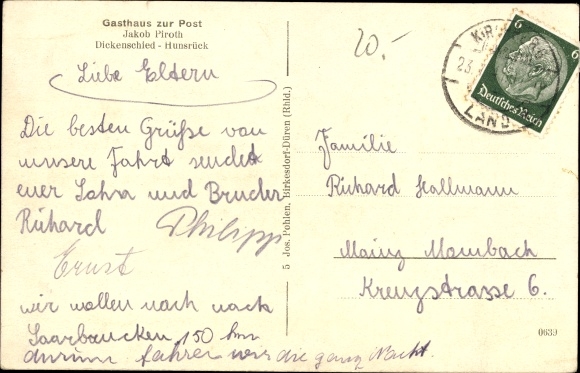 Gasthaus zur Post
Jakob Piroth
Dickenschied - Hunsrück
Liebe Eltern
Die besten Grüße von
unsere Fahrt sendet
euer Sohn und Bruder
Richard Philipp
Ernst
wir wollen noch nach
Saarbrücken 150 km
darum fahren wir die ganz Nacht.
5 Jos. Pohlen, Birkesdorf-Düren (Rhld.)
20.-
KIR
23.
LAND
6 6
Deutsches Reich
Familie
Richard Hallmann
Mainz Mombach
Kreuzstrasse 6.
0639